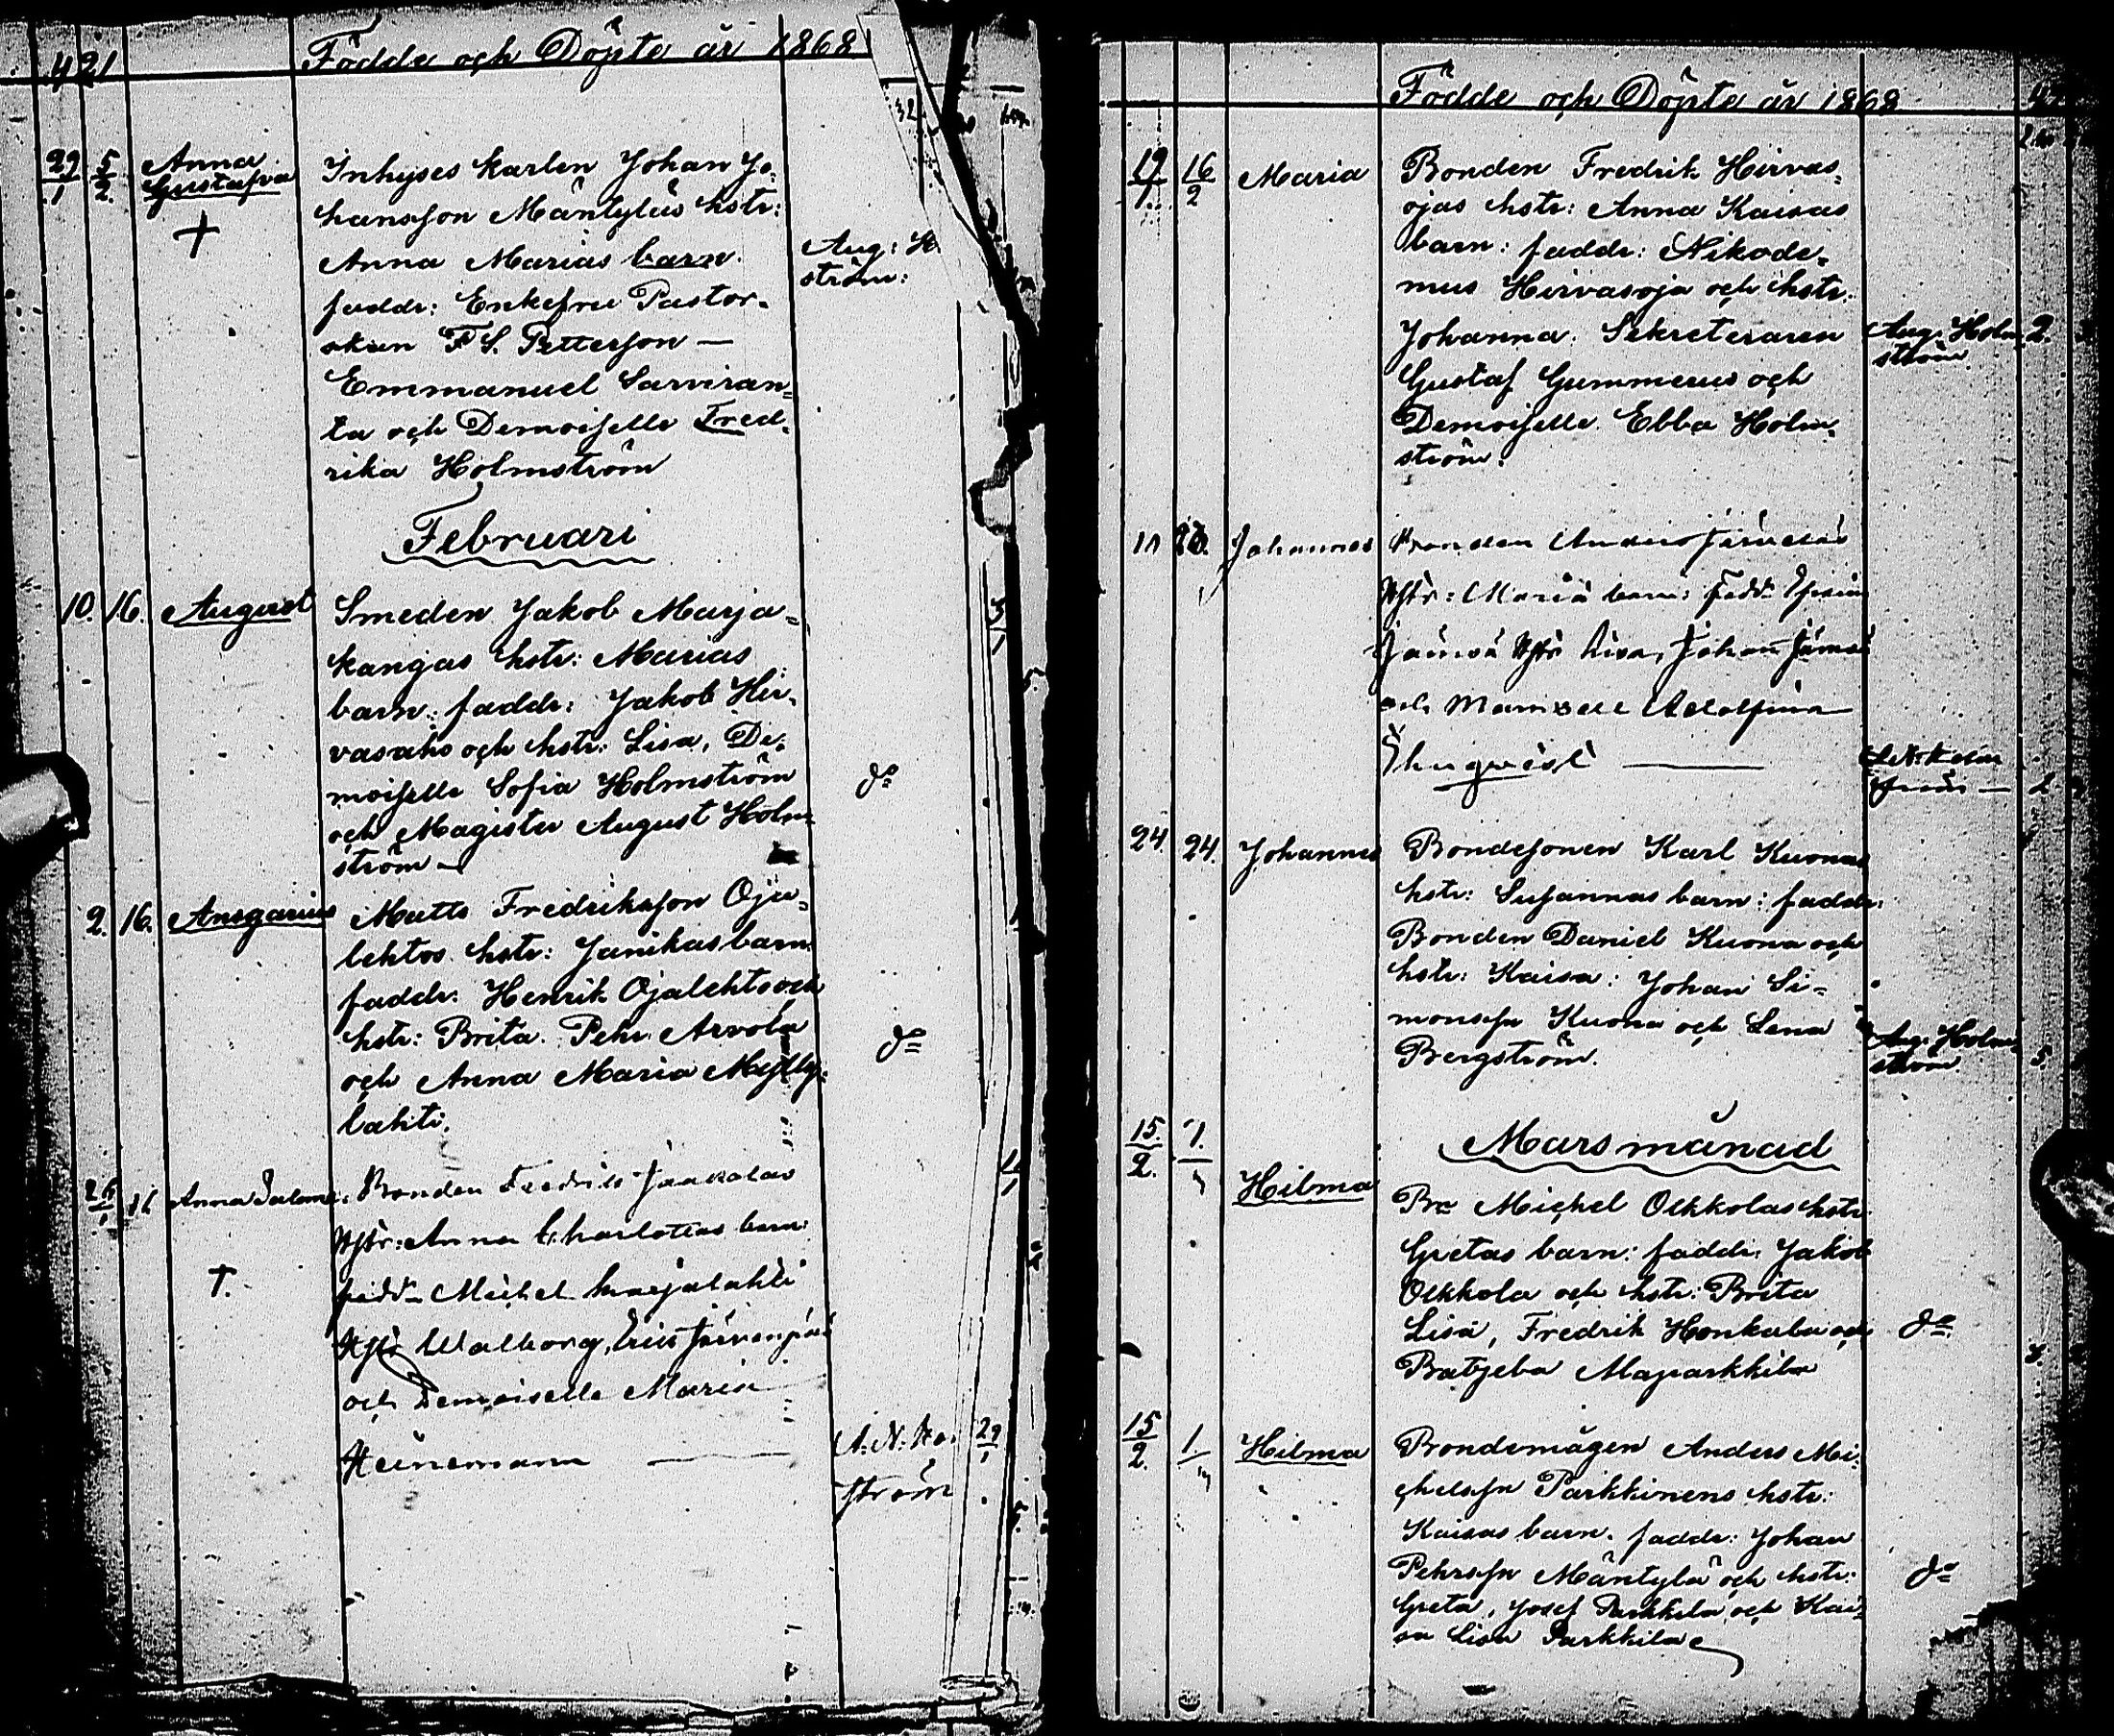 421 Födde och Döpte år 1868
29/1 5/2 Anna Inhyses karlen Johan Jo-
Gustafva hansson Mäntyläs hstr:
Anna Marias barn.
Aug: H
faddr: Enkefru Pastor-
ström:
skan F S. Petterson —
Emmanuel Sarviran-
ta och Demoiselle Fred-
rika Holmström
Februari
10. 16. August Smeden Jakob Marja-
kangas hstr: Marias
barn: faddr: Jakob Hir-
vasaho och hstr: Lisa, De-
moiselle Sofia Holmström do
och Magister August Holm-
ström —
2. 16. Ansgarius Matts Fredriksson Oja-
lehtos hstr: Janikas barn
faddr: Henrik Ojalehto och
hstr: Brita. Pehr Arvola do
och Anna Maria Mylly-
lahti.
Anna Bonden Fredrik Jaakolas
Hstr: Anna Charlottas barn
fadd Michel Marjalahti
Hstr Walborg, Järvenpää
och Demoiselle Maria
Heinemann —
A. N. Ho 29/1
ström
Födde och Döpte år 1868
19/1 16/2 Maria Bonden Fredrik Hirvas-
ojas hstr: Anna Kaisas
barn: faddr: Nikode-
mus Hirvasoja och hstr:
Johanna. Sekreteraren Aug. Holm- 2.
Gustaf Gummerus och ström
Demoiselle Ebba Holm-
ström.
Johannes Bonden Anders
Hstr: Maria barn: Fadd
Hstr Lisa, Johan
och Mamsell Adolfina
—
24. 24. Johannes Bondesonen Karl Kuonas
hstr: Susannas barn: faddr:
Bonden Daniel Kuona och
hstr: Kaisa: Johan Si-
monssn Kuona och Lena Aug. Holm-
Bergström. ström. 5.
Mars månad
15./2. 1. Hilma
Bn Michel Olkkolas hstr
Gretas barn: faddr. Jakob
Olkkola och hstr: Brita
Lisa, Fredrik Honkala och do
Batseba Maparkkila
15/2. 1. Hilma Bondemågen Anders Mi-
chelssn Parkkinens hstr:
Kaisas barn. faddr: Johan
Pehrssn Mäntylä och hstr: do
Greta, Josef Parkkila och Kai-
sa Lisa Parkkila